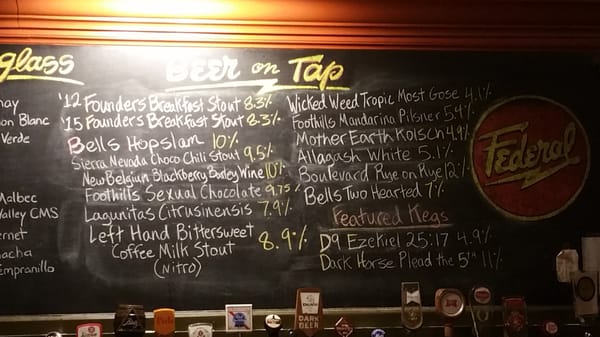 glass
Malbec
Valley CMS
Beer on Tap
'12 Founders Breakfast Stout 8.3%
'15 Founders Breakfast Stout 8.3%
Bells Hopslam 10%
Sierra Nevada Choco Chili Stout 9.5%
New Belgium Blackberry Barley Wine 10%
Foothills Sexual Chocolate 9.75%
Lagunitas Citrusinensis 7.9%
Left Hand Bittersweet
Coffee Milk Stout 8.9%
(Nitro)
Wicked Weed Tropic Most Gose 4.1%
Foothills Mandarina Pilsner 5.4%
Mother Earth Kolsch 4.9%
Allagash White 5.1%
Boulevard Rye on Rye 12%
Bells Two Hearted 7%
Featured Kegs
D9 Ezekiel 25:17 4.9%
Dark Horse Plead the 5th 11%
Federal
DARK
BEER